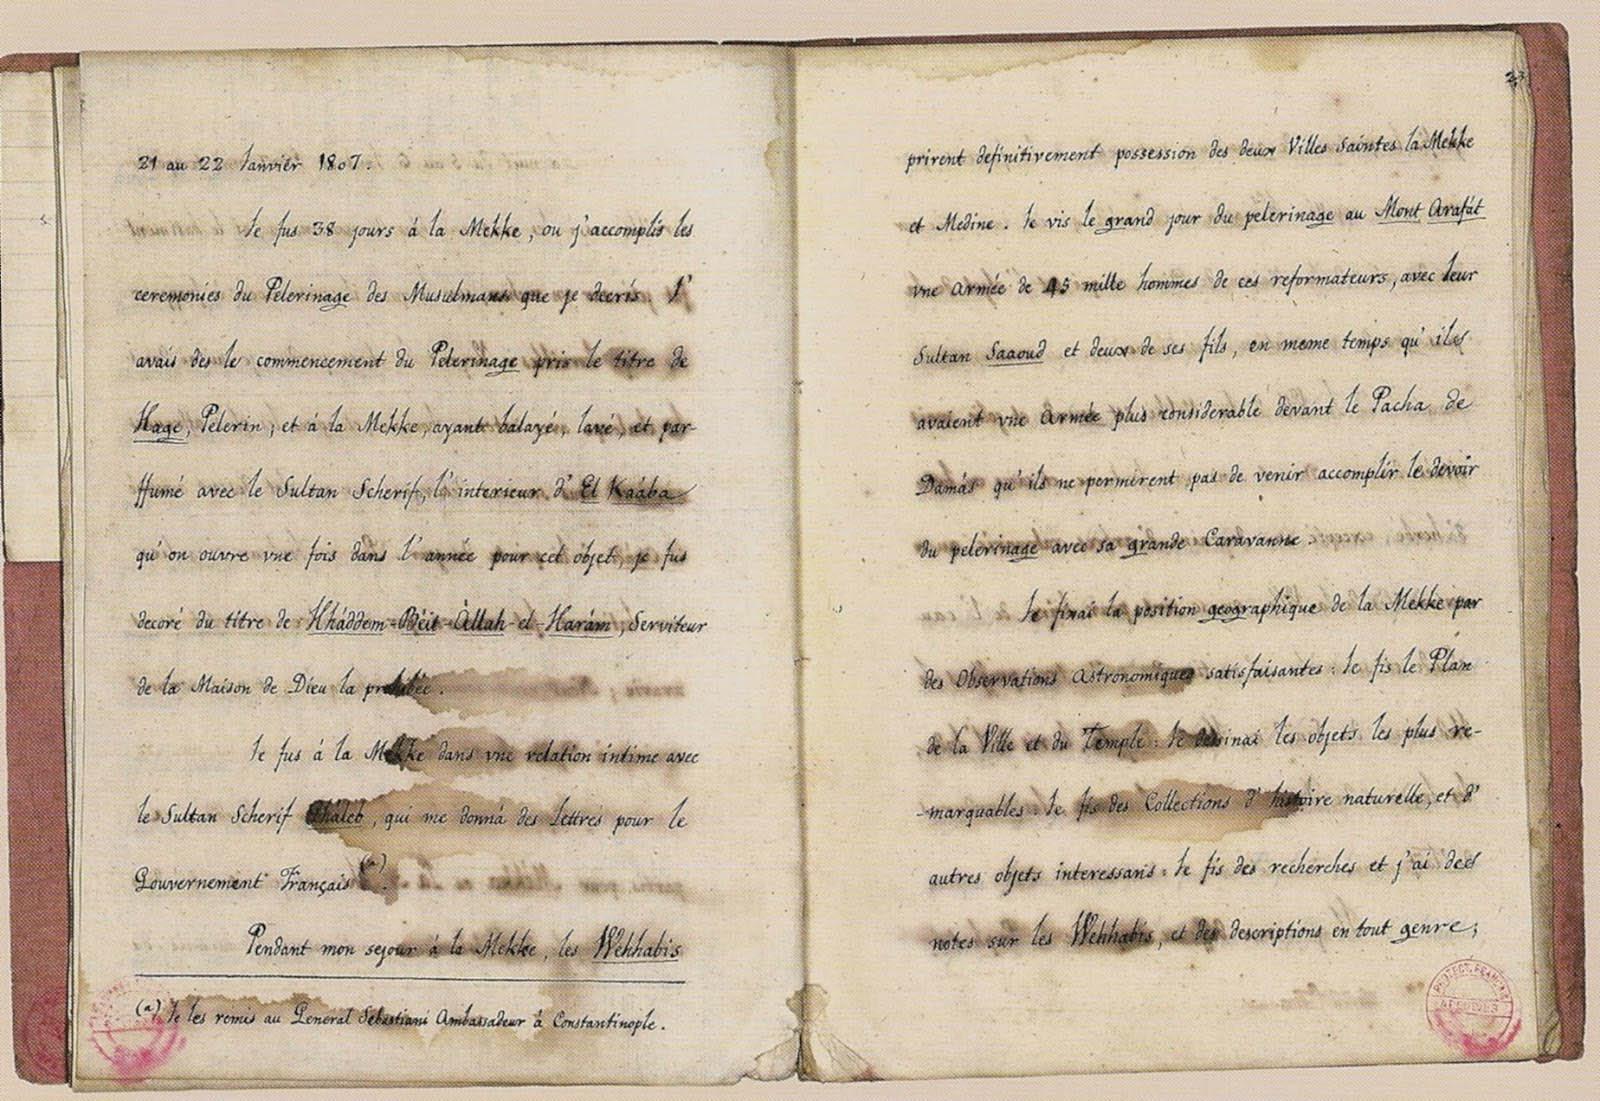 21 au 22 Ianvier 1807.
Ie fus 38 jours á la Mekke, ou j'accomplis les
ceremonies du Pelerinage des Musulmans que je decris, I'
avais des le commencement du Pelerinage pris le titre de
Hage, Pelerin; et á la Mekke, ayant balayé, lavé, et par-
ffumé avec le Sultan Scherif, l'interieur d' El Kaába
qu'on ouvre vne fois dans l'année pour cet objet, je fus
decoré du titre de Hháddem-Béit-Àllah-el-Harám, Serviteur
de la Maison de Dieu la prohibée.
Ie fus á la Mekke dans vne relation intime avec
le Sultan Scherif Gháleb, qui me donná des lettres pour le
Gouvernement Français (a).
Pendant mon sejour á la Mekke, les Wehhabis
(a) Ie les remis au General Sebastiani Ambassadeur á Constantinople.
23
prirent definitivement possession des deux Villes Saintes la Mekke
et Medine. Ie vis le grand jour du pelerinage au Mont Arafát
vne Armée de 45 mille hommes de ces reformateurs, avec leur
Sultan Saaoud et deux de ses fils, en meme temps qu'iles
avaient vne Armée plus considerable devant le Pacha de
Damás qu'ils ne permirent pas de venir accomplir le devoir
du pelerinage avec sa grande Caravanne.
Ie fixai la position geographique de la Mekke par
des Observations Astronomiques satisfaisantes: Ie fis le Plan
de la Ville et du Temple: Ie dessinai les objets les plus re-
-marquables: Ie fis des Collections d'histoire naturelle, et d'
autres objets interessans: Ie fis des recherches et j'ai des
notes sur les Wehhabis, et des descriptions en tout genre;